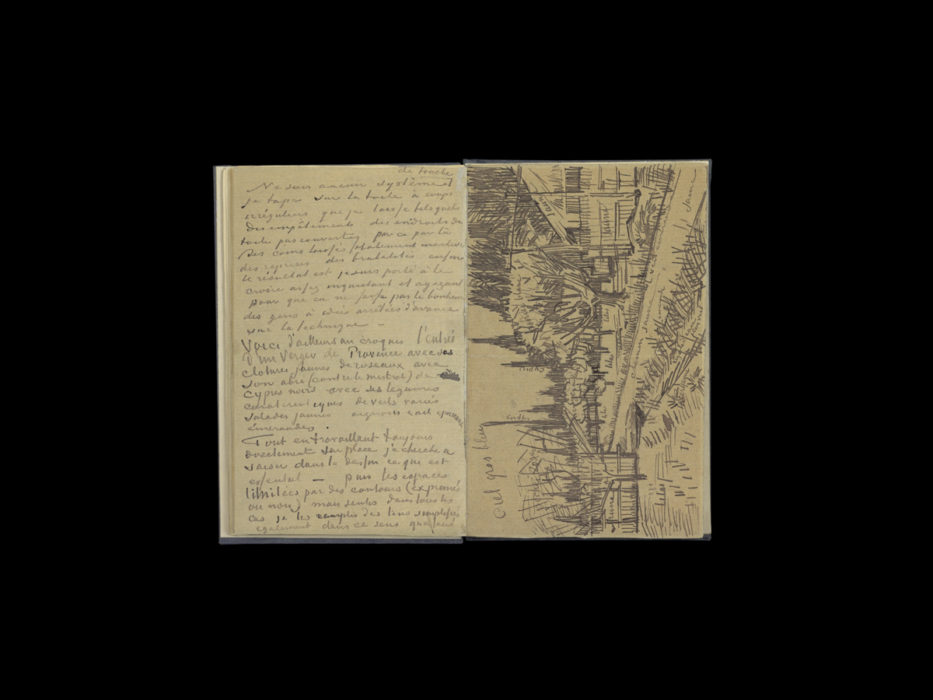 de touche
Ne suis aucun système
je tape sur la toile à coups
irréguliers que je laisse tels quels
Des empâtements des endroits de
toile pas couverts par ci par là
Des coins laissés totalement inachevés
des reprises des brutalités enfin
le résultat est je suis porté à le
croire assez inquietant et agaçant
pour que ca ne fasse pas le bonheur
des gens à idées arrêtées d'avance
sur la technique —
Voici d'ailleurs un croquis l'entrée
d'un Verger de Provence avec ses
clotures jaunes de roseaux avec
son abri (contre le mistral) de
cyprès noirs avec ses legumes
caracteristiques de verts variés
salades jaunes oignons et ail
émeraudes.
Tout en travaillant toujours
directement sur place je cherche a
saisir dans le dessin ce qui est
essentiel — puis les espaces
limitées par des contours (exprimés
ou non) mais sentis dans tous les
cas je les remplis des tons simplifiés
egalement dans ce sens que
Ciel gros bleu
cyprès
lilas
jaune